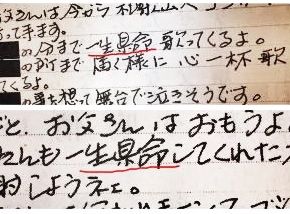 父さんは今から
って来ます。
の分まで一生県命歌ってくるよ。
の所まで届く様に心一杯歌
くるよ。
の事を想って舞台で泣きそうです。
と、お父さんはおもうよ
さんも一生県命してくれた
謝しようネェ。